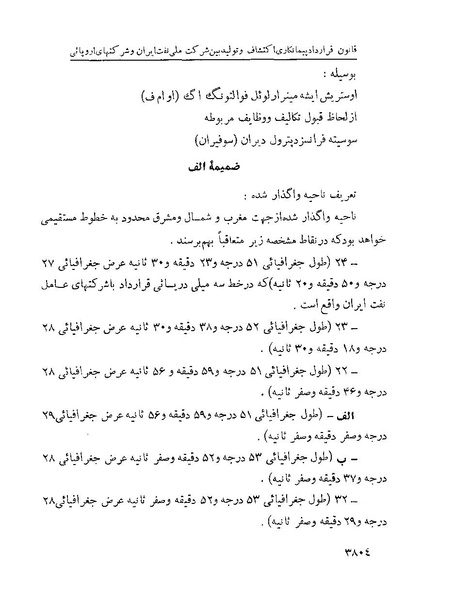 قانون قرارداد پیمانکاری اکتشاف و تولید بین شرکت ملی نفت ایران و شرکتهای اروپائی
بوسیله :
اوستریش ایشه مینرارلوئل فوالتونگ اگ (او ام ف)
از لحاظ قبول تکالیف و وظایف مربوطه
سوسیته فرانسز دپترول دیران (سوفیران)
ضمیمهٔ الف
تعریف ناحیه واگذار شده :
ناحیه واگذار شده از جهت مغرب و شمال و مشرق محدود به خطوط مستقیمی
خواهد بود که در نقاط مشخصه زیر متعاقباً بهم برسند .
ــ ۲۴ (طول جغرافیائی ۵۱ درجه و ۲۳ دقیقه و ۳۰ ثانیه عرض جغرافیائی ۲۷
درجه و ۵۰ دقیقه و ۲۰ ثانیه) که در خط سه میلی دریائی قرارداد با شرکتهای عامل
نفت ایران واقع است .
ــ ۲۳ (طول جغرافیائی ۵۲ درجه و ۳۸ دقیقه و ۳۰ ثانیه عرض جغرافیائی ۲۸
درجه و ۱۸ دقیقه و ۳۰ ثانیه) .
ــ ۲۲ (طول جغرافیائی ۵۱ درجه و ۵۹ دقیقه و ۵۶ ثانیه عرض جغرافیائی ۲۸
درجه و ۴۶ دقیقه و صفر ثانیه)
الف ــ (طول جغرافیائی ۵۱ درجه و ۵۹ دقیقه و ۵۶ ثانیه عرض جغرافیائی ۲۹
درجه و صفر دقیقه و صفر ثانیه) .
ــ ب (طول جغرافیائی ۵۳ درجه و ۵۲ دقیقه و صفر ثانیه عرض جغرافیائی ۲۸
درجه و ۳۷ دقیقه و صفر ثانیه) .
ــ ۳۲ (طول جغرافیائی ۵۳ درجه و ۵۲ دقیقه و صفر ثانیه عرض جغرافیائی ۲۸
درجه و ۲۹ دقیقه و صفر ثانیه) .
۳۸۰۴